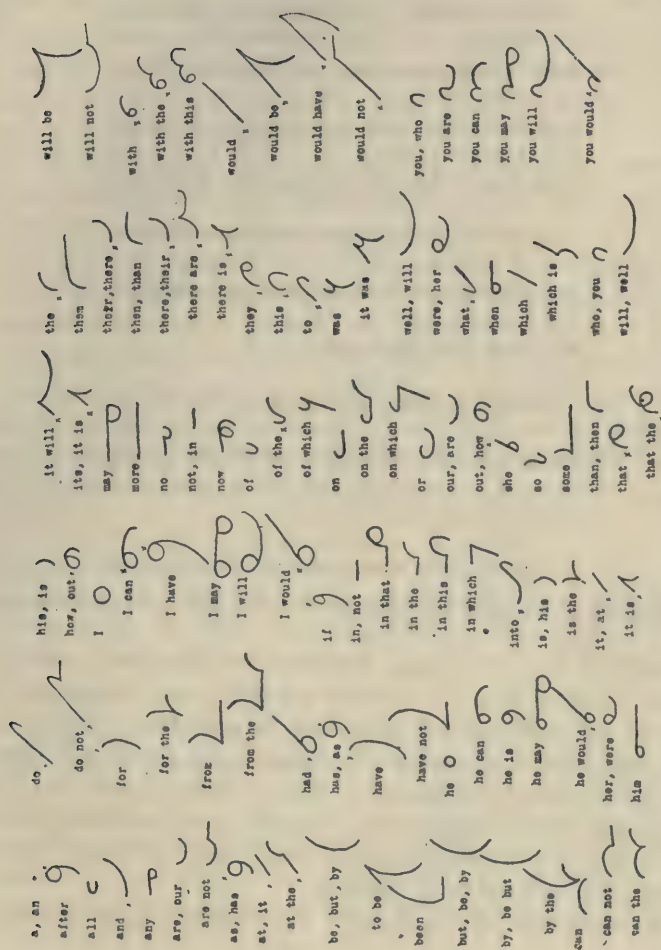 a, an
after
all
and
any
are, our
are not
as, has
at, it
at the
be, but, by
to be
been
but, be, by
by, be but
by the
can
can not
can the
do
do not
for
for the
from
from the
had
has, as
have
have not
he
he can
he is
he may
he would
her, were
him
his, is
how, out
I
I can
I have
I may
I will
I would
if
in, not
in that
in the
in this
in which
into
is, his
is the
it, at
it is
it will
its, it is
may
more
no
not, in
now
of
of the
of which
on
on the
on which
or
our, are
out, how
she
so
some
than, then
that
that the
the
them
their, there
then, than
there, their
there are
there is
they
this
to
was
it was
well, will
were, her
what
when
which
which is
who, you
will, well
will be
will not
with
with the
with this
would
would be
would have
would not
you, who
you are
you can
you may
you will
you would